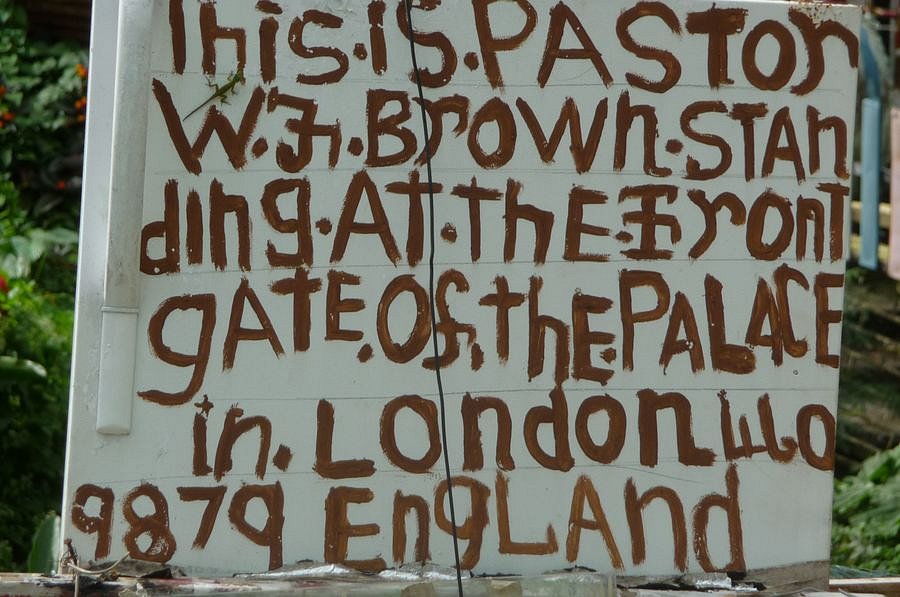 This.is.PASTor
W.F.Brown.STAN
ding.AT.thE.Front
gATE.Of.thE.PALACE
in.London
9879 EngLAnd